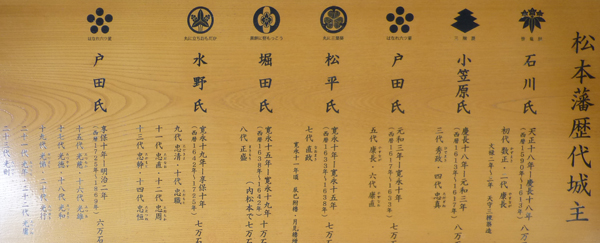 松本藩歴代城主
石川氏
天正十八年ー慶長十八年
八万石
初代 数正・二代 康長
小笠原氏
慶長十八年ー元和三年
八万石
三代 秀政・四代 忠真
はなれ六ッ星
戸田氏
元和三年ー寛永十年
(西暦1617年〜1633年)
七万石
五代 康長・六代 康直
松平氏
寛永十年ー寛永十五年
(西暦1633年〜1638年)
七万石
七代 直政
堀田氏
寛永十五年ー寛永十九年
(西暦1638年〜1642年)
十万石
(内松本で七万石)
八代 正盛
丸に立ち沢瀉
水野氏
寛永十九年ー享保十年
(西暦1642年〜1725年)
七万石
九代 忠清・十代 忠職
十一代 忠直・十二代 忠周
十三代 忠幹・十四代 忠恒
はなれ六ッ星
戸田氏
享保十年ー明治二年
(西暦1725年〜1869年)
六万石
十五代 光慈・十六代 光雄
十七代 光徳・十八代 光和